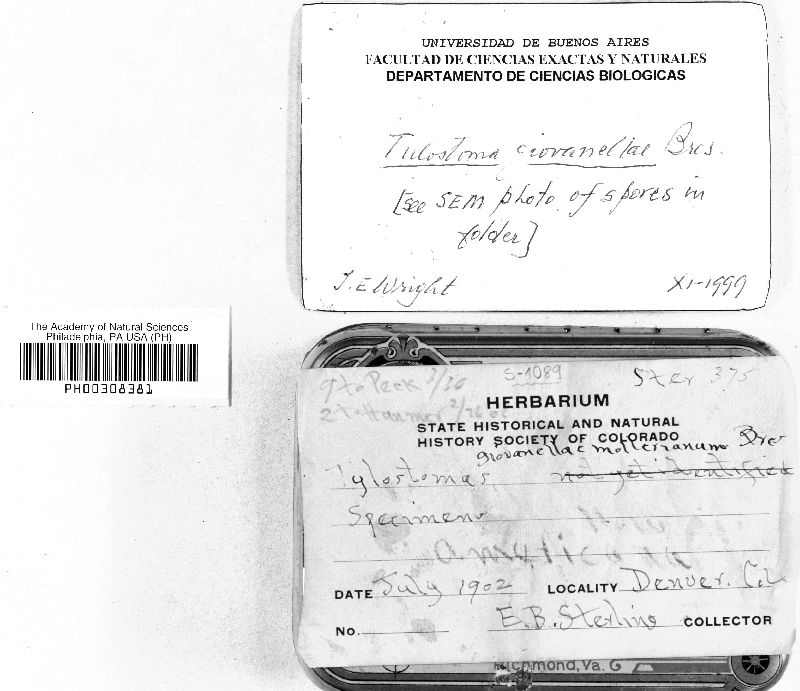 UNIVERSIDAD DE BUENOS AIRES
FACULTAD DE CIENCIAS EXACTAS Y NATURALES
DEPARTAMENTO DE CIENCIAS BIOLOGICAS
Tulostoma giovanellae Bres.
[see SEM photo of spores in
folder]
J. E Wright XI-1999
The Academy of Natural Sciences
Philadelphia, PA USA (PH)
PH00308381
to Peck 2/26
S-1089
Ster 375
2 to
HERBARIUM
STATE HISTORICAL AND NATURAL
HISTORY SOCIETY OF COLORADO
giovanellae mollerianum Bres
Tylostomas not yet identified
Specimens
DATE July 1902 LOCALITY Denver. Col
No. E.B. Sterling COLLECTOR
Richmond, Va.